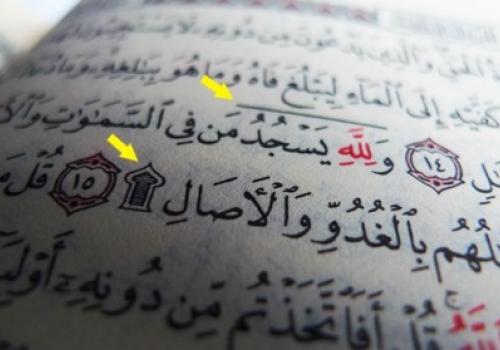 الْحَقِّ وَالَّذِينَ يَدْعُونَ مِن دُونِهِ لَا
كَفَّيْهِ إِلَى ٱلْمَآءِ لِيَبْلُغَ فَاهُ وَمَا هُوَ بِبَٰلِغِهِۦ وَمَا
ـلَٰلٍ ١٤ وَلِلَّهِ يَسْجُدُ مَن فِي ٱلسَّمَٰوَٰتِ وَٱلْأَ
ـلُهُم بِٱلْغُدُوِّ وَٱلْأٓصَالِ ۩ ١٥ قُلْ مَ
ٱللَّهُ قُلْ أَفَٱتَّخَذْتُم مِّن دُونِهِۦٓ أَوْلِيَ